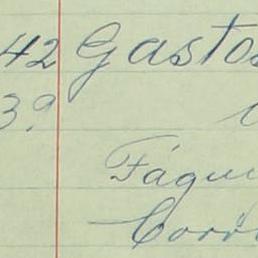 42 Gastos
39
Fáqui
Corr